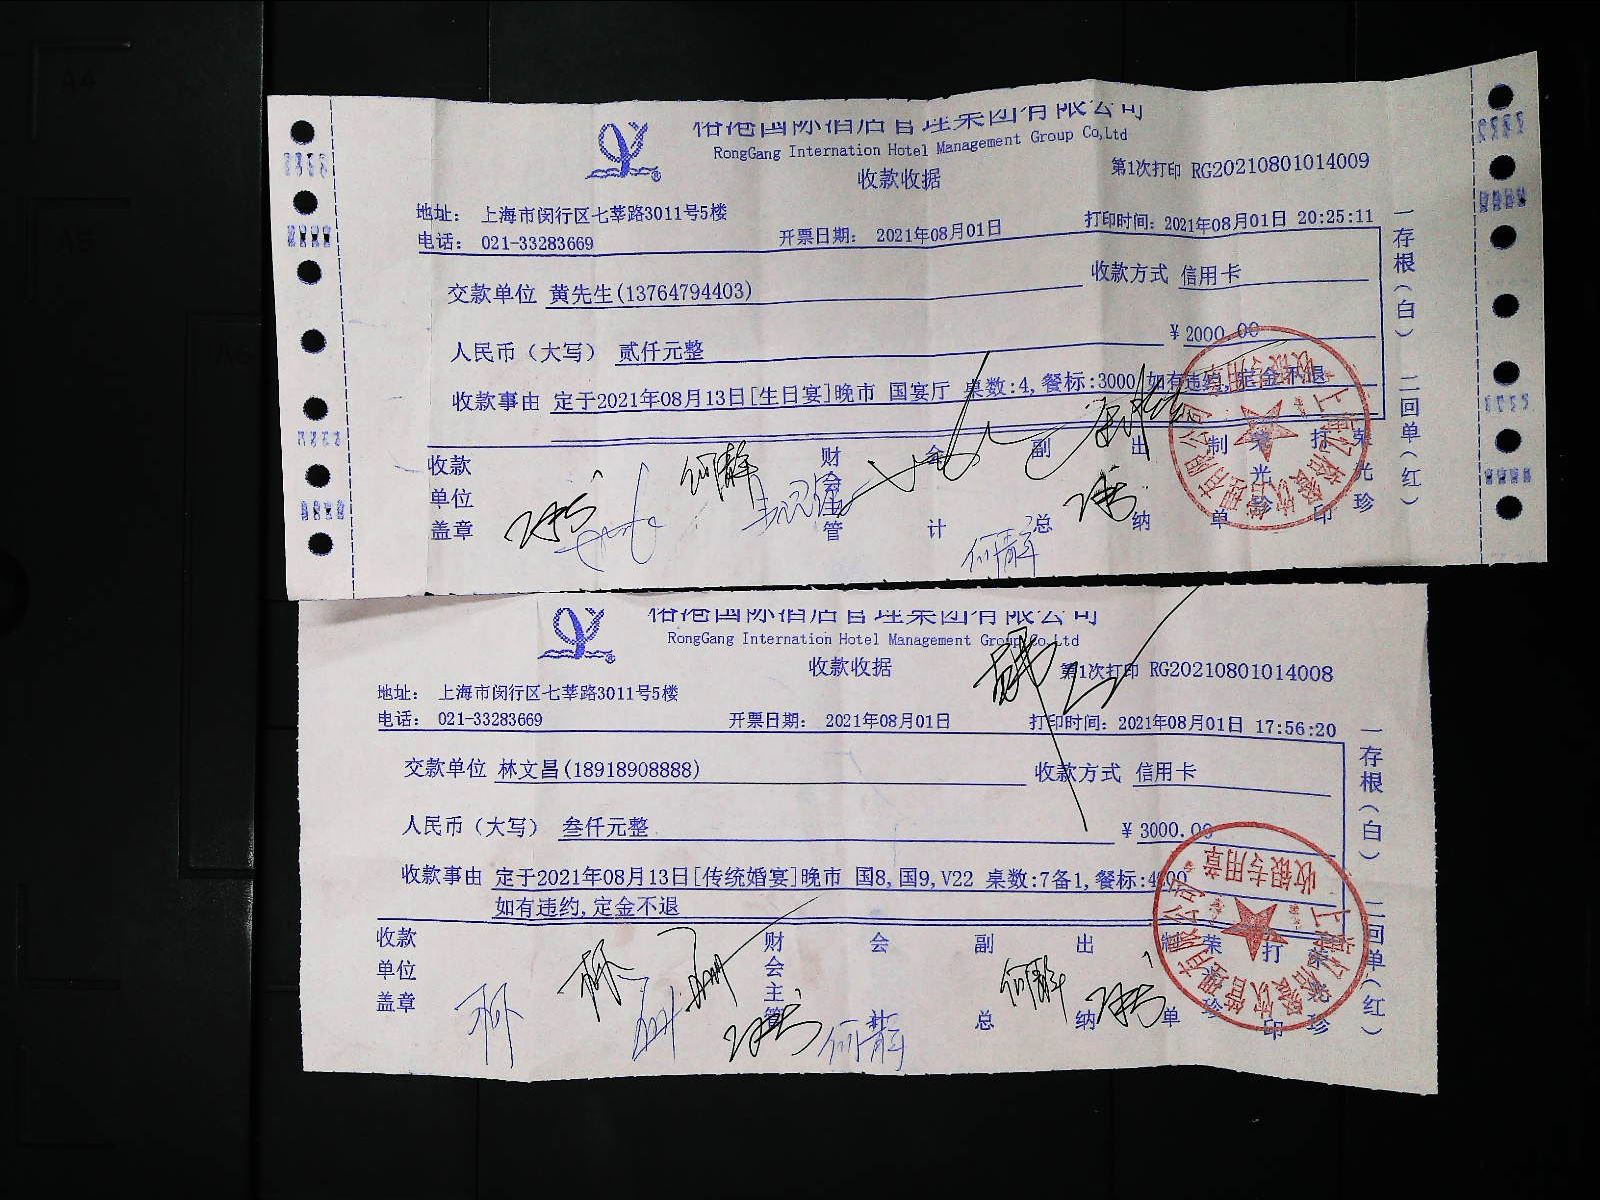 榕港国际酒店管理集团有限公司
RongGang Internation Hotel Management Group Co,Ltd
收款收据
第1次打印 RG20210801014009
地址: 上海市闵行区七莘路3011号5楼
电话: 021-33283669
开票日期: 2021年08月01日
打印时间: 2021年08月01日 20:25:11
交款单位 黄先生(13764794403)
收款方式 信用卡
人民币(大写) 贰仟元整
¥ 2000.00
收款事由 定于2021年08月13日[生日宴]晚市 国宴厅 桌数:4,餐标:3000,如有违约,定金不退
收款单位盖章
财会主管
会计
副总
出纳
制单
荣光珍
打印
荣光珍
一存根(白) 二回单(红)
何静
何静
收银专用章
榕港国际酒店管理集团有限公司
RongGang Internation Hotel Management Group Co,Ltd
收款收据
第1次打印 RG20210801014008
地址: 上海市闵行区七莘路3011号5楼
电话: 021-33283669
开票日期: 2021年08月01日
打印时间: 2021年08月01日 17:56:20
交款单位 林文昌(18918908888)
收款方式 信用卡
人民币(大写) 叁仟元整
¥ 3000.00
收款事由 定于2021年08月13日[传统婚宴]晚市 国8,国9,V22 桌数:7备1,餐标:4800
如有违约,定金不退
收款单位盖章
财会主管
会计
副总
出纳
制单
荣光珍
打印
荣光珍
一存根(白) 二回单(红)
何静
何静
收银专用章